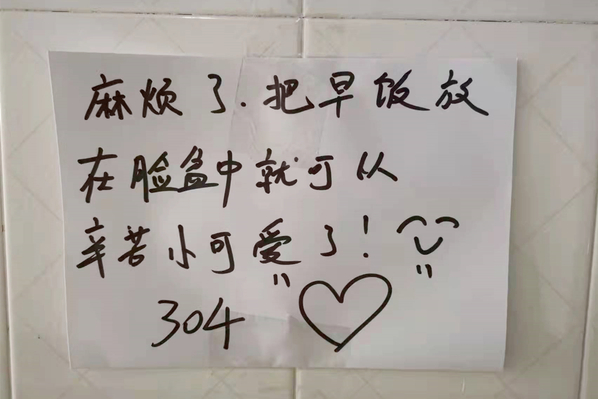 麻烦了.把早饭放
在脸盆中就可以
辛苦小可爱了!
304